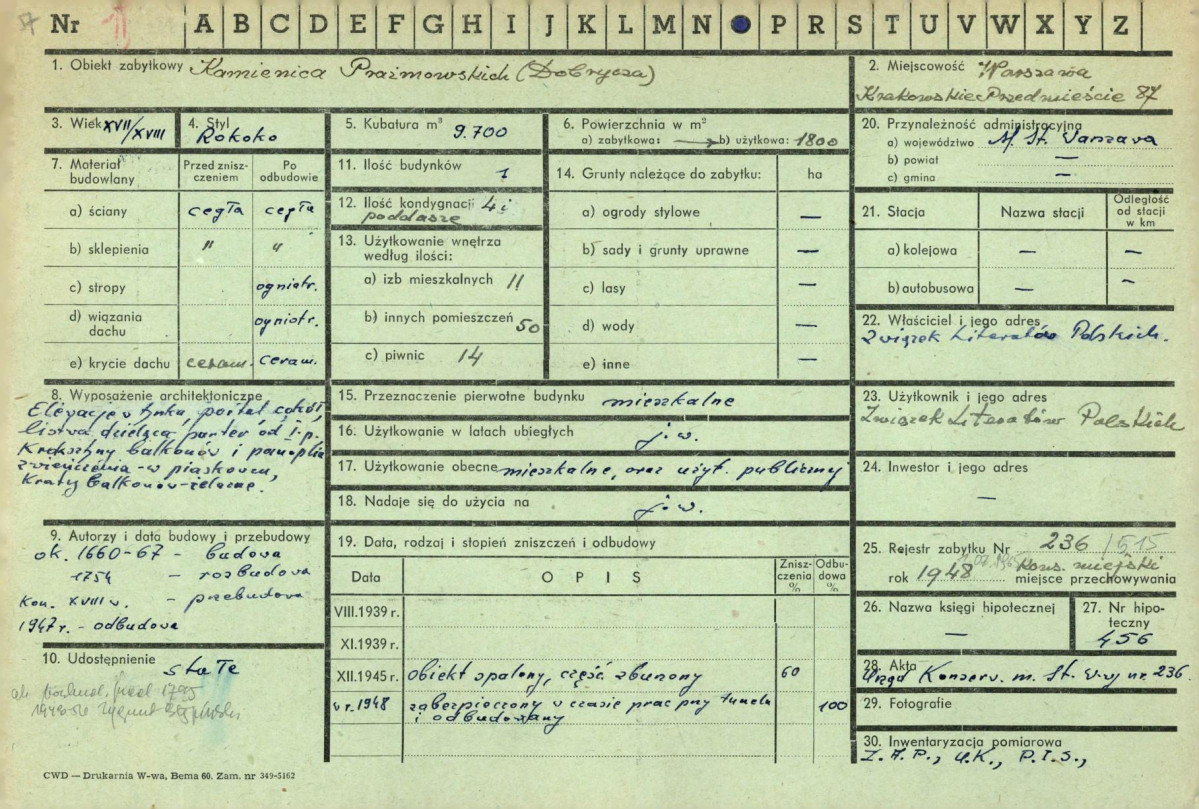 Nr A B C D E F G H I J K L M N P R S T U V W X Y Z
1. Obiekt zabytkowy Kamienica Prażmowskich (Dobrycza)
2. Miejscowość Warszawa
Krakowskie Przedmieście 87
3. Wiek XVII/XVIII
4. Styl Rokoko
5. Kubatura m³ 9.700
6. Powierzchnia w m²
a) zabytkowa: b) użytkowa: 1800
7. Materiał budowlany
Przed zniszczeniem
Po odbudowie
a) ściany cegła cegła
b) sklepienia " "
c) stropy ogniotr.
d) wiązania dachu ogniotr.
e) krycie dachu ceram. ceram.
8. Wyposażenie architektoniczne
Elewacje w tynku, portal, cokół,
listwa dzieląca parter od I p.
Kroksztyny balkonów i panoplia
zwieńczenia - w piaskowcu,
Kraty balkonów - żelazne.
9. Autorzy i data budowy i przebudowy
ok. 1660-67 - budowa
1754 - rozbudowa
Kon. XVIII w. - przebudowa
1947 r. - odbudowa
10. Udostępnienie stałe
1795
Zygmunt Stępiński
11. Ilość budynków 1
12. Ilość kondygnacji 4 i
poddasze
13. Użytkowanie wnętrza
według ilości:
a) izb mieszkalnych 11
b) innych pomieszczeń 50
c) piwnic 14
14. Grunty należące do zabytku: ha
a) ogrody stylowe —
b) sady i grunty uprawne —
c) lasy —
d) wody —
e) inne —
15. Przeznaczenie pierwotne budynku mieszkalne
16. Użytkowanie w latach ubiegłych j.w.
17. Użytkowanie obecne mieszkalne, oraz użyt. publicznej
18. Nadaje się do użycia na j.w.
19. Data, rodzaj i stopień zniszczeń i odbudowy
Data OPIS Zniszczenia % Odbudowa %
VIII.1939 r.
XI.1939 r.
XII.1945 r. obiekt spalony, część zburzony 60
w r. 1948 zabezpieczony w czasie prac przy tunelu 100
i odbudowany
20. Przynależność administracyjna
a) województwo M. St. Warszawa
b) powiat —
c) gmina —
21. Stacja Nazwa stacji Odległość od stacji w km
a) kolejowa — —
b) autobusowa — —
22. Właściciel i jego adres
Związek Literatów Polskich.
23. Użytkownik i jego adres
Związek Literatów Polskich
24. Inwestor i jego adres
—
25. Rejestr zabytku Nr 236 / 515
rok 1948 Kons. miejski
miejsce przechowywania
26. Nazwa księgi hipotecznej
—
27. Nr hipoteczny
456
28. Akta
Urząd Konserw. m. St. W-wy nr. 236
29. Fotografie
30. Inwentaryzacja pomiarowa
Z.A.P., U.K., P.I.S.,
CWD — Drukarnia W-wa, Bema 60. Zam. nr 349-5162